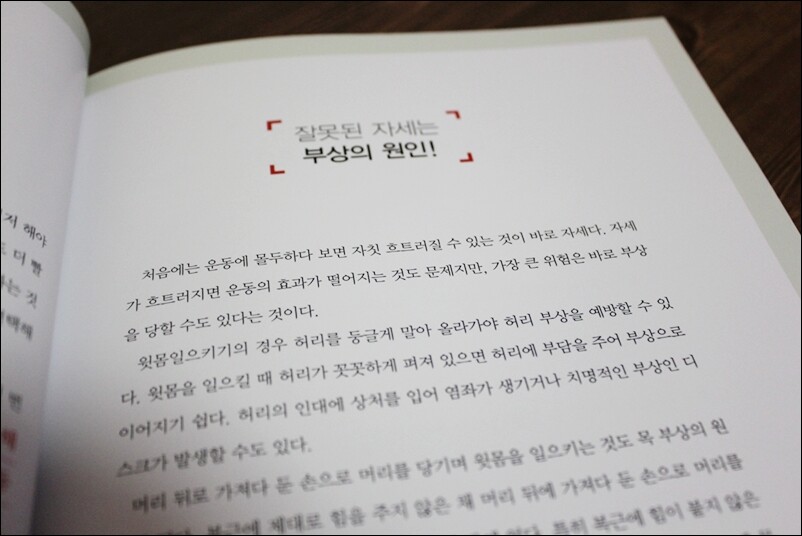 잘못된 자세는
부상의 원인!
처음에는 운동에 몰두하다 보면 자칫 흐트러질 수 있는 것이 바로 자세다. 자세
가 흐트러지면 운동의 효과가 떨어지는 것도 문제지만, 가장 큰 위험은 바로 부상
을 당할 수도 있다는 것이다.
윗몸일으키기의 경우 허리를 둥글게 말아 올라가야 허리 부상을 예방할 수 있
다. 윗몸을 일으킬 때 허리가 꼿꼿하게 펴져 있으면 허리에 부담을 주어 부상으로
이어지기 쉽다. 허리의 인대에 상처를 입어 염좌가 생기거나 치명적인 부상인 디
스크가 발생할 수도 있다.
머리 뒤로 가져다 둔 손으로 머리를 당기며 윗몸을 일으키는 것도 목 부상의 원
복근에 제대로 힘을 주지 않은 채 머리 뒤에 가져다 둔 손으로 머리를
특히 복근에 힘이 붙지 않은
해야
더 빨
는 것